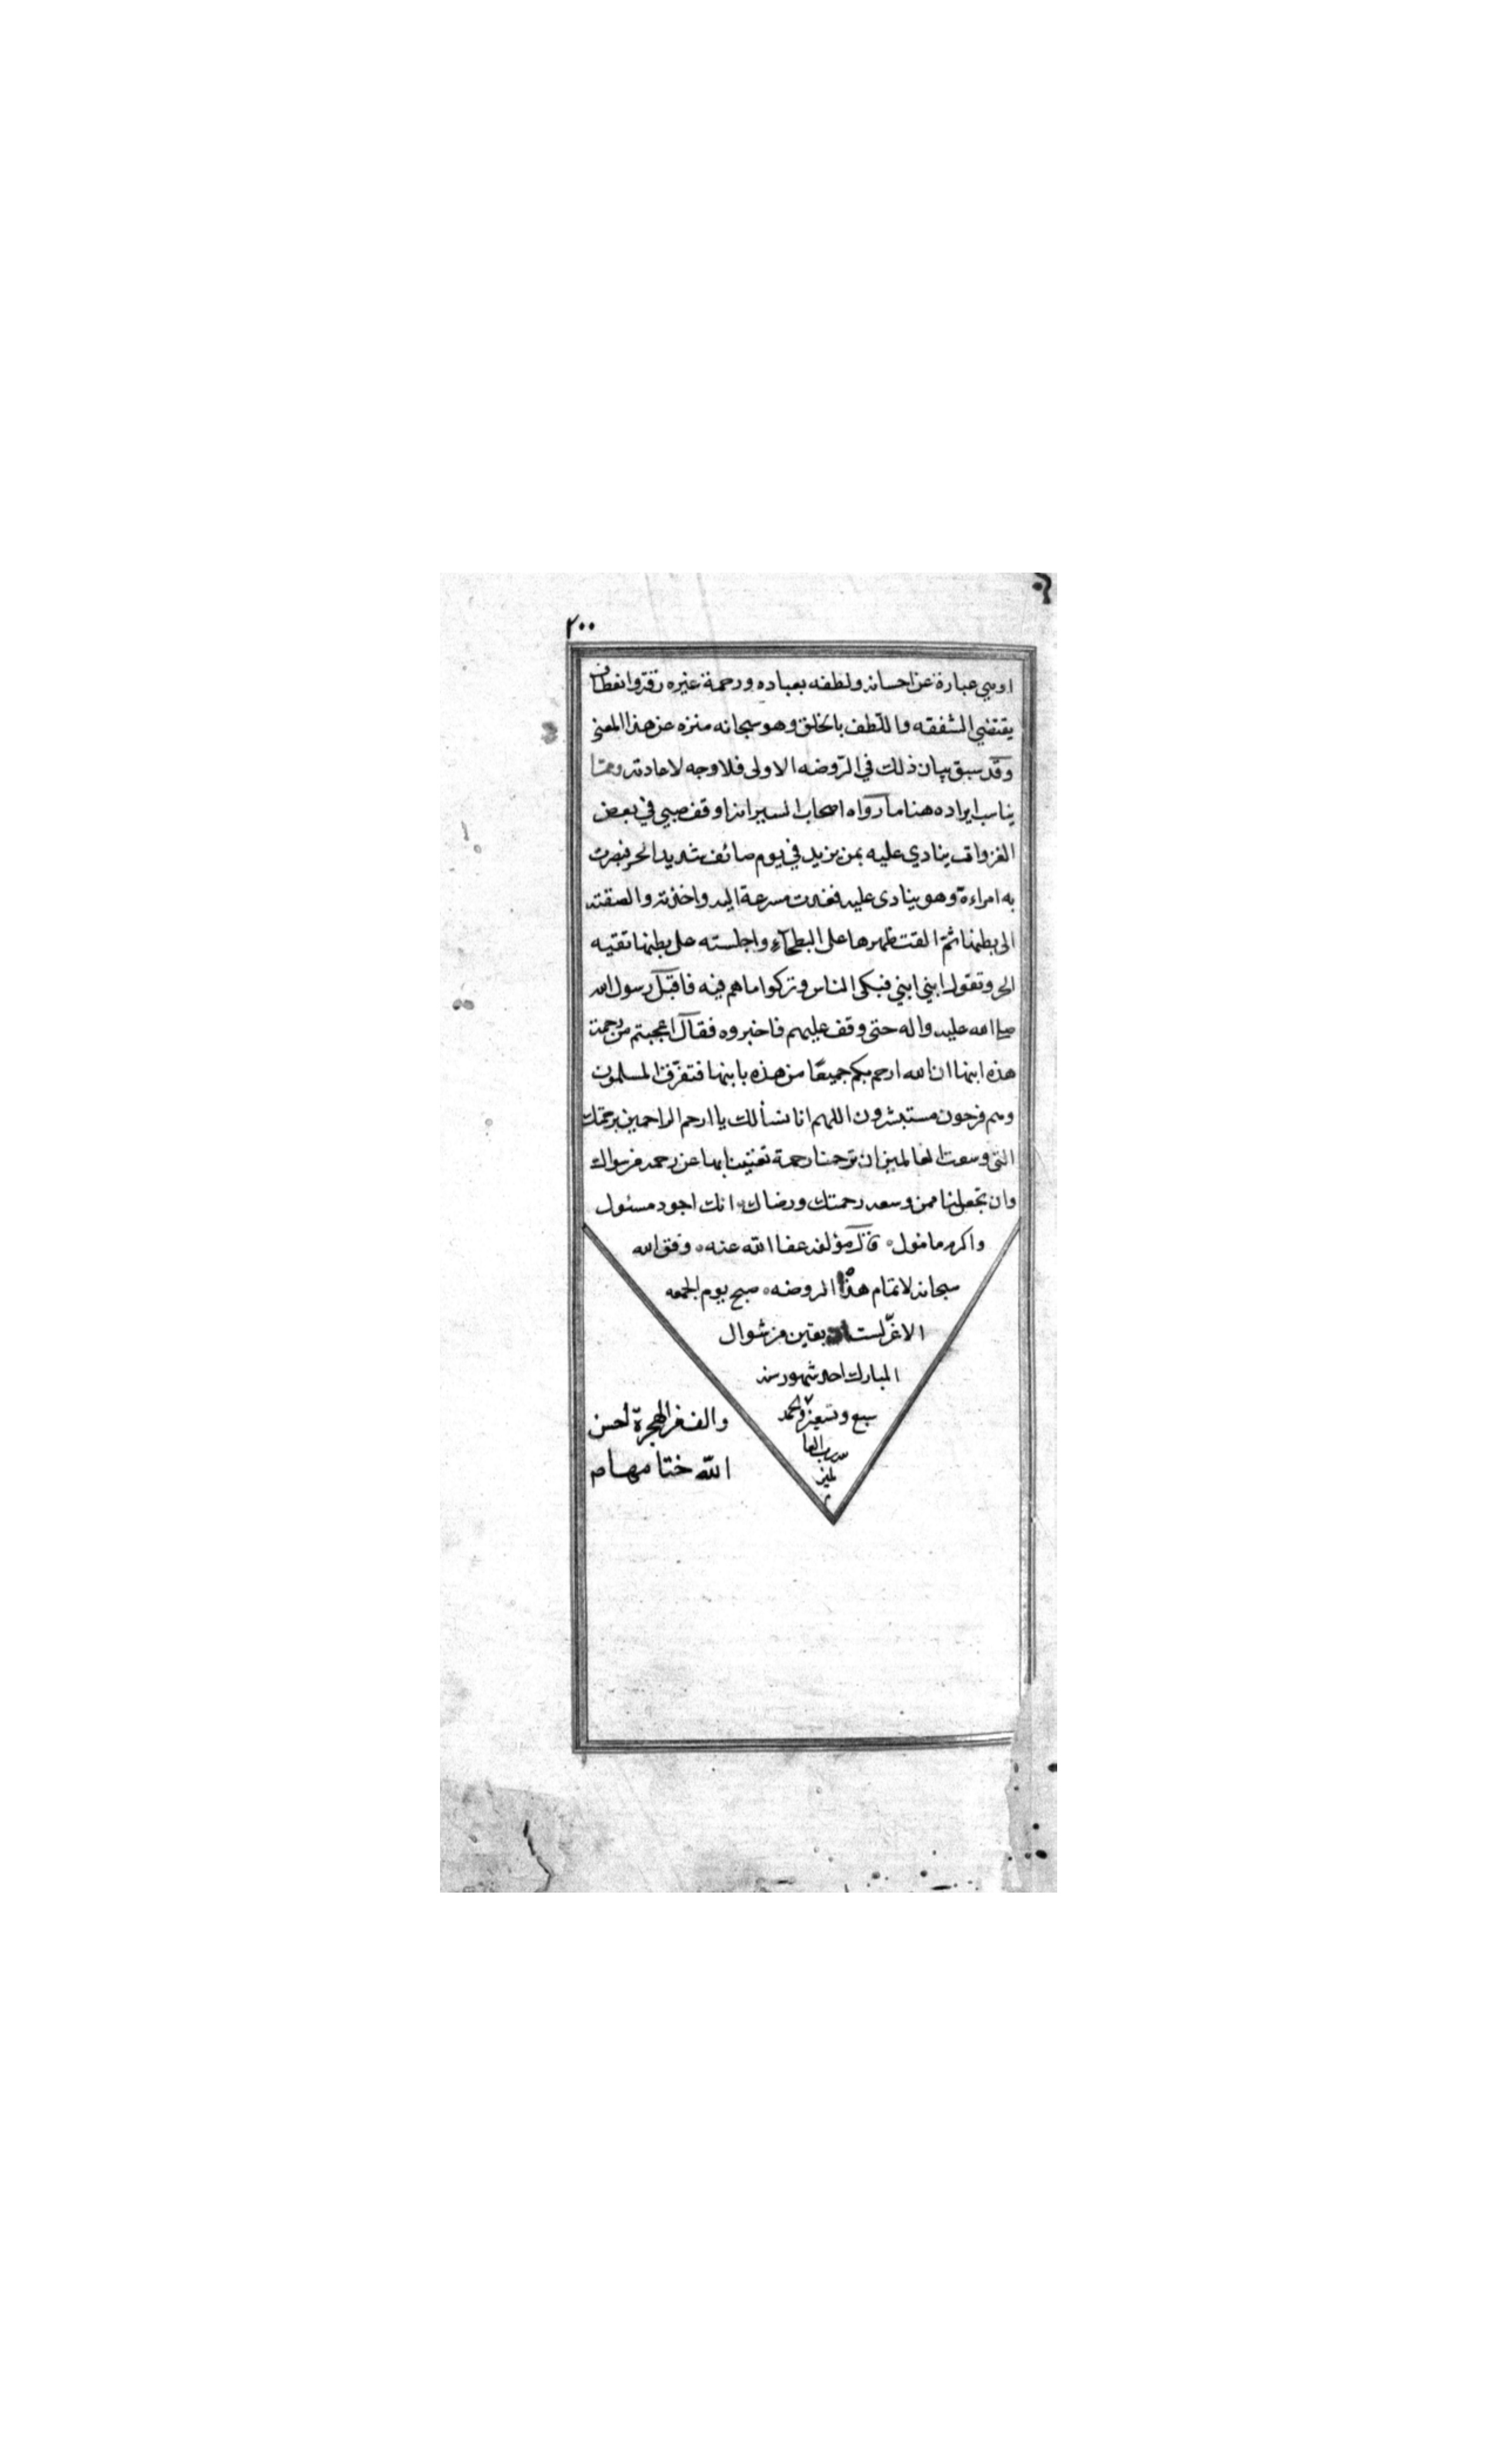 ٢٠٠
او هي عبارة عن احسانه ولطفه بعباده ورحمة غيره رقة وانعطاف
يقتضي الشفقه واللطف بالخلق وهو سبحانه منزه عن هذا المعنى
وقد سبق بيان ذلك في الروضه الاولى فلا وجه لاعادته ومما
يناسب ايراده هنا ما رواه اصحاب السير انه اوقف صبي في بعض
الغزوات ينادي عليه بمن يزيد في يوم صائف شديد الحر فبصرت
به امراءة وهو ينادى عليه فغدت مسرعة اليه واخذته والصقته
الى بطنها ثمّ القت ظهرها على البطحاء واجلسته على بطنها تقيه
الحر وتقول ابني ابني فبكى الناس وتركوا ما هم فيه فاقبل رسول الله
صلى الله عليه واله حتى وقف عليهم فاخبروه فقال اعجبتم من رحمة
هذه ابنها ان الله ارحم بكم جميعًا من هذه بابنها فتفرّق المسلمون
وهم فرحون مستبشرون اللهم انا نسألك يا ارحم الراحمين برحمتك
التي وسعت العالمين ان ترحمنا رحمة تغنينا بها عن رحمة من سواك
وان تجعلنا ممن وسعه رحمتك ورضاك انك اجود مسئول
واكرم مامول ۰ قال مؤلفه عفا الله عنه ۰ وفق الله
سبحانه لاتمام هذه الروضه ۰ صبح يوم الجمعه
الاغرّ لست بقين من شوال
المبارك احد شهور سنه
سبع وتسعين والحمد
لله رب العا
لمين
م
والف من الهجرة احسن
الله ختامها م